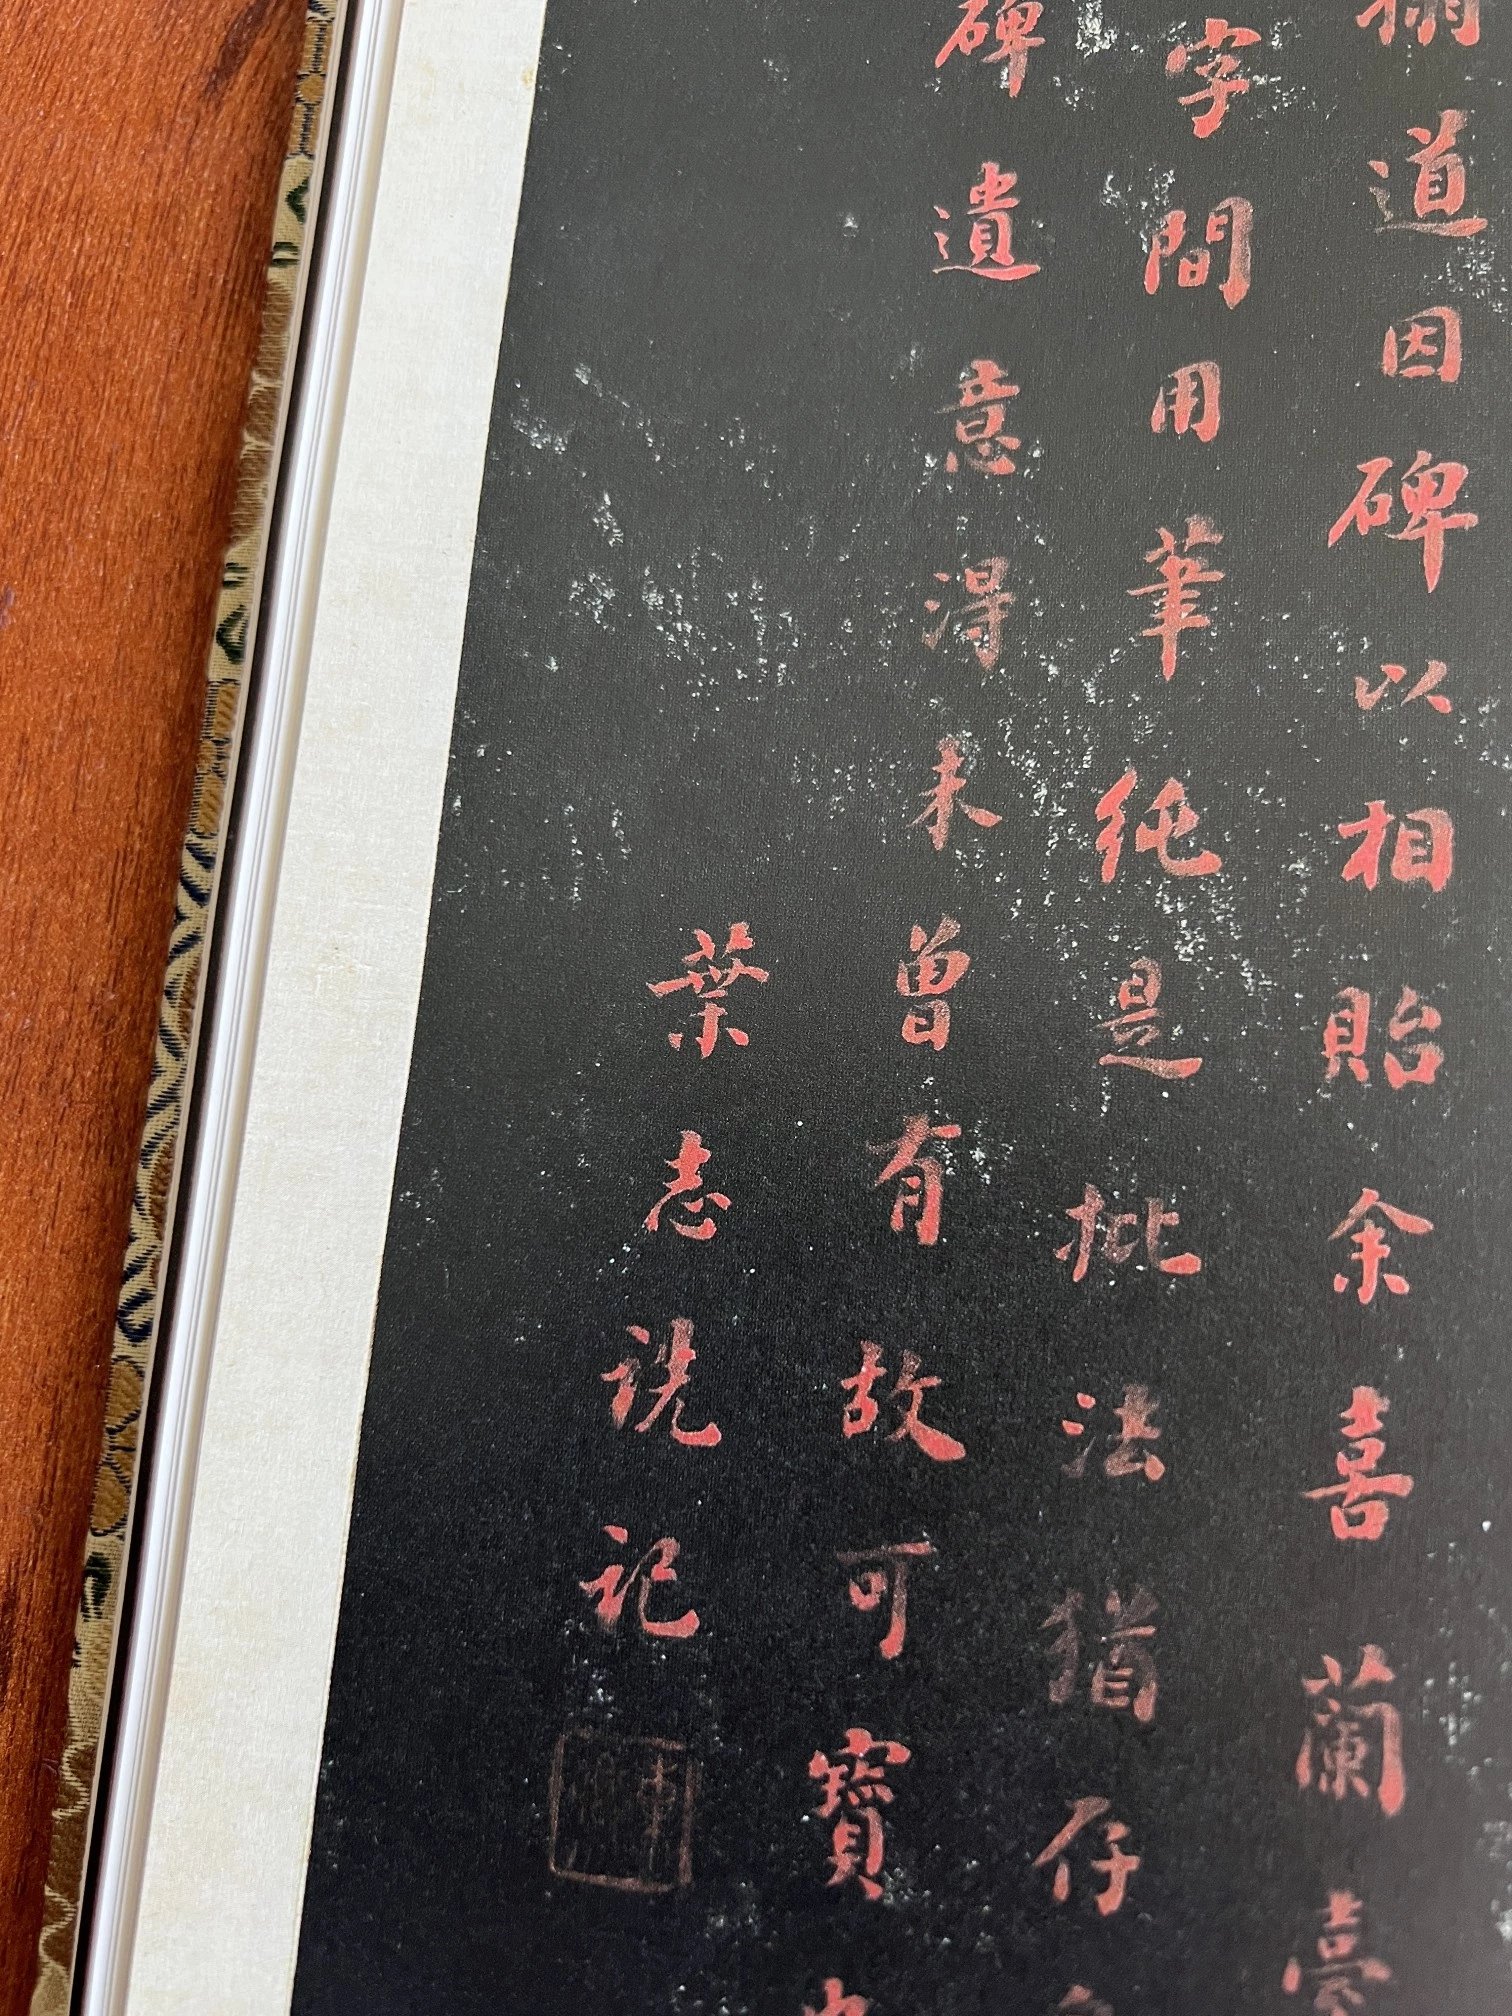 道因碑以相貽余喜蘭臺
字間用筆純是批法猶存
碑遺意得未曾有故可寶
葉志詵記